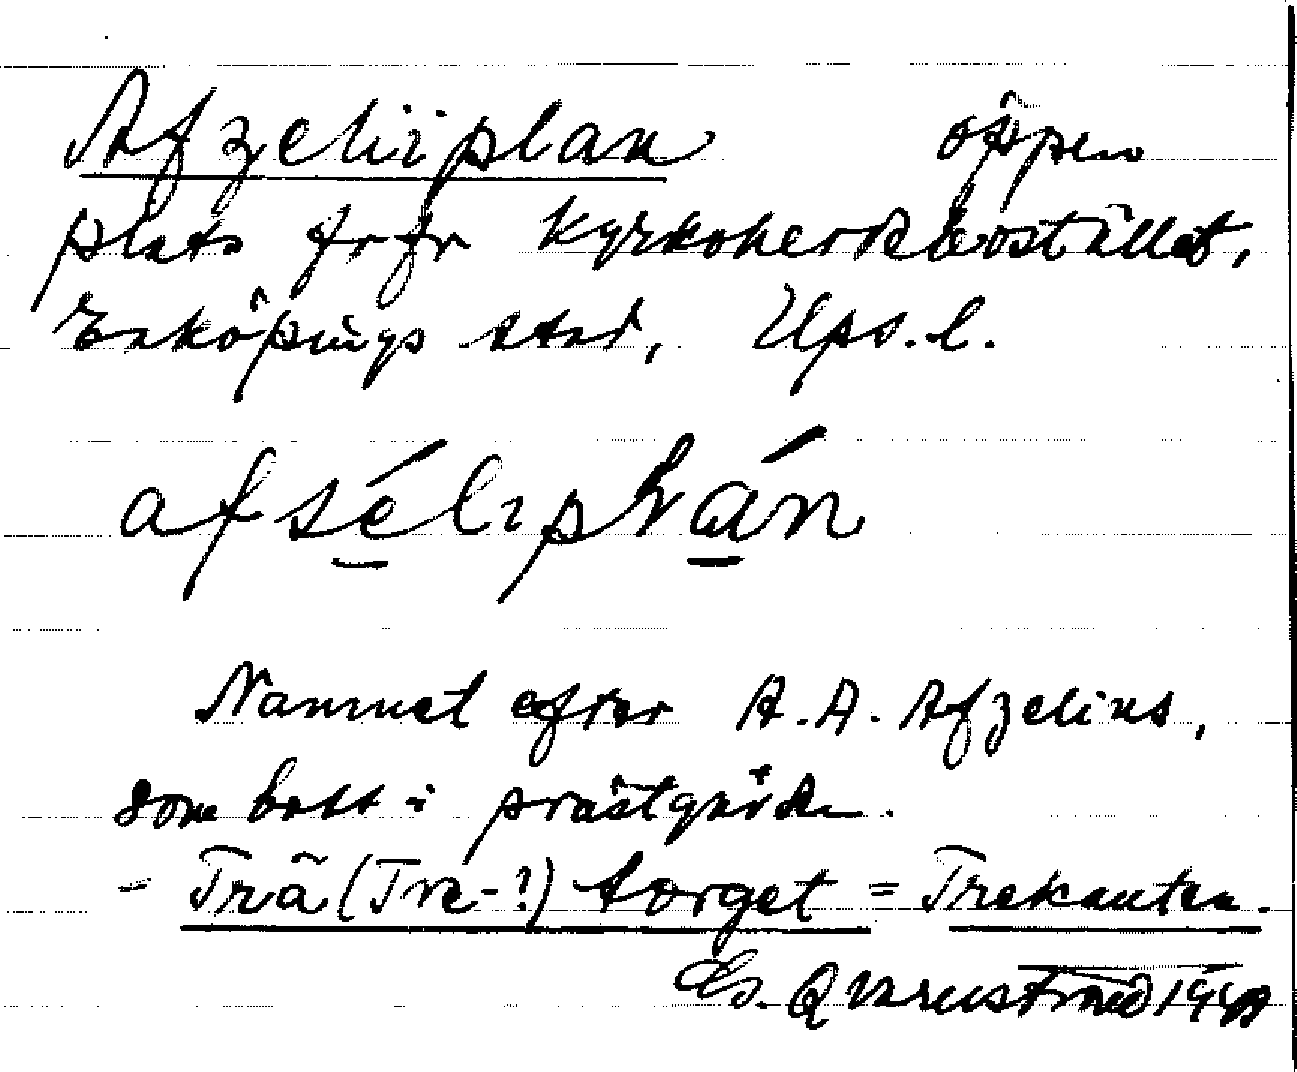 Afzeliiplan öppen
plats frfr kyrkoherdebostället,
Enköpings stad, Ups. l.
afsélıplán
Namnet efter A. A. Afzelius,
som bott i prästgården.
- Trä (Tre-?) torget = Trekanten.
Qvarnström